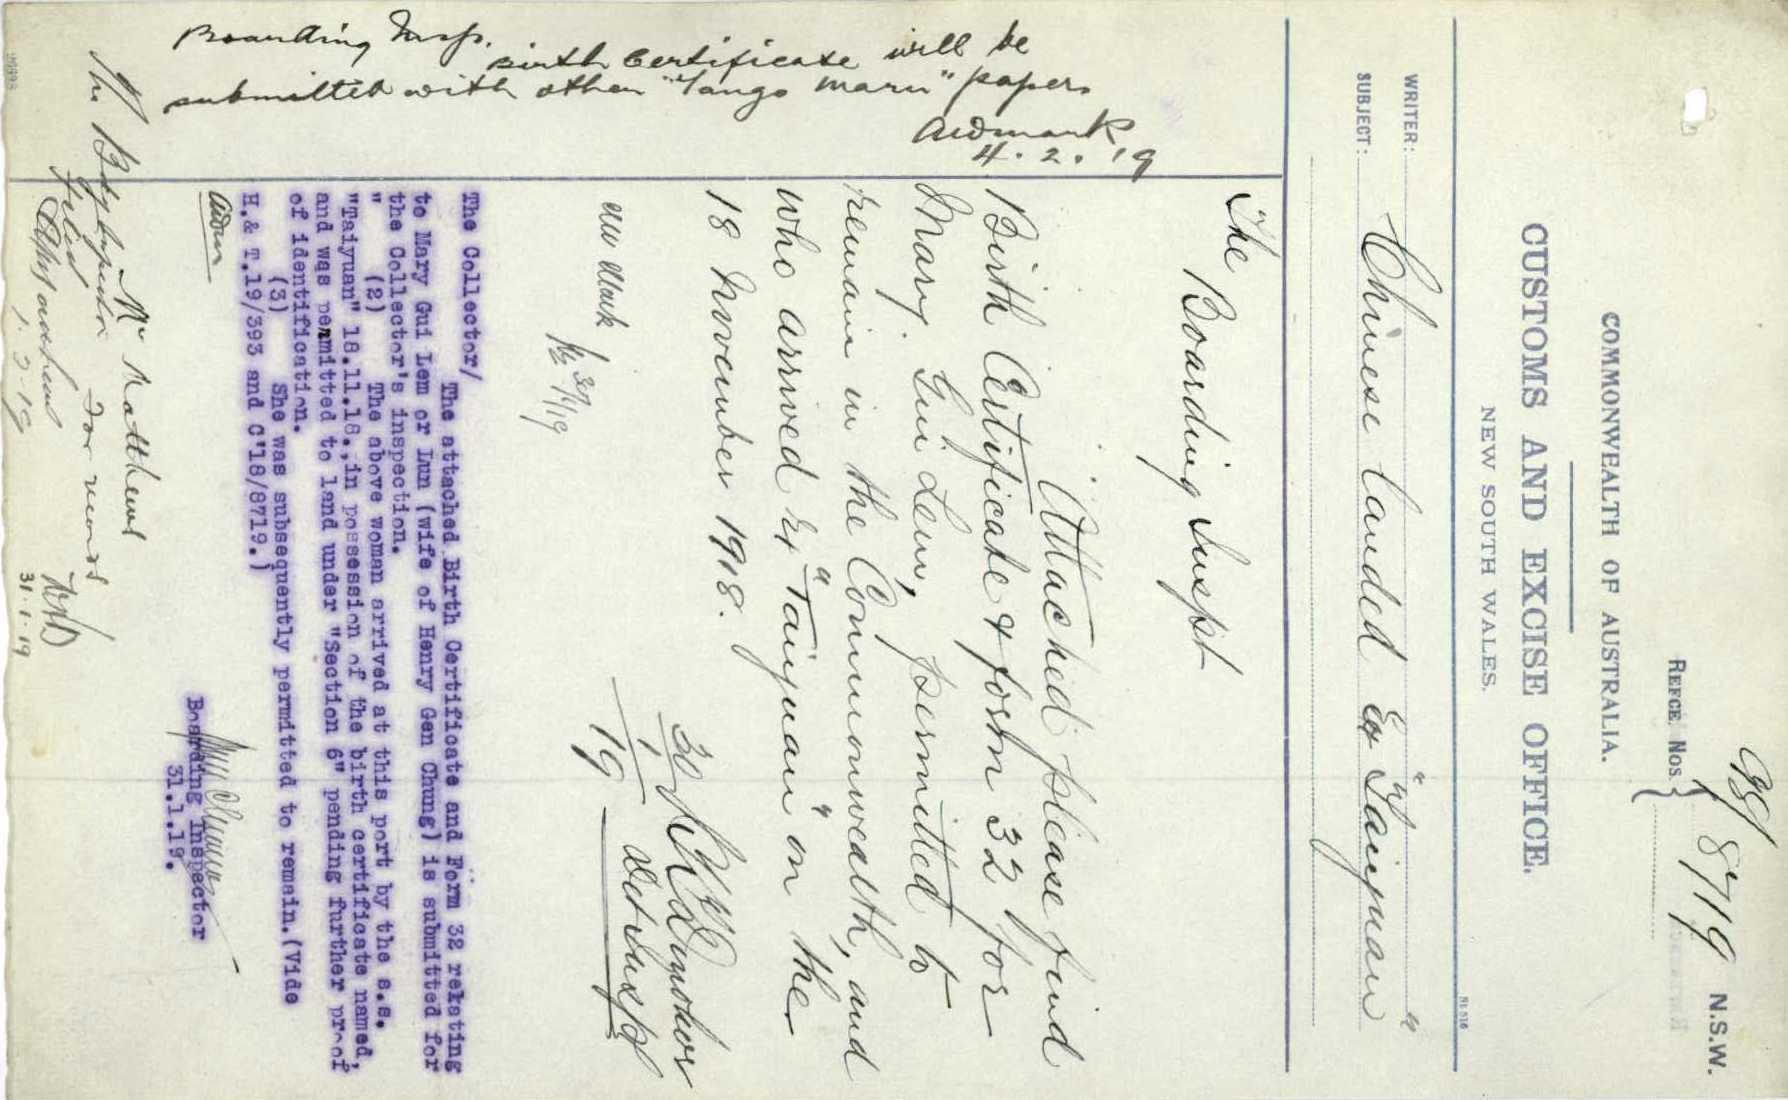 98/8719 N.S.W.
REFCE NOS.
COMMONWEALTH OF AUSTRALIA.
CUSTOMS AND EXCISE OFFICE.
NEW SOUTH WALES.
WRITER:
SUBJECT: Chinese landed ex "Taiyuan"
The
Boarding Inspt
Attached please find
Birth Certificate & form 32 for
Mary Gui Lem, permitted to
remain in the Commonwealth, and
who arrived ex "Taiyuan" on the
18 November 1918.
30/1/19
Det Inspt
The Collector/
The attached Birth Certificate and Form 32 relating
to Mary Gui Lem or Lun (wife of Henry Gen Chung) is submitted for
the Collector's inspection.
" (2) The above woman arrived at this port by the s.s.
"Taiyuan" 18.11.18., in possession of the birth certificate named,
and was permitted to land under "Section 6" pending further proof
of identification.
(3) She was subsequently permitted to remain. (Vide
H.& T.19/393 and C'18/8719.)
Boarding Inspector
31.1.19.
Mr Matthews
For records
31.1.19
The
Filed
1.2.19
Boarding Insp.
birth certificate will be
submitted with other "Tango Maru" papers
4.2.19